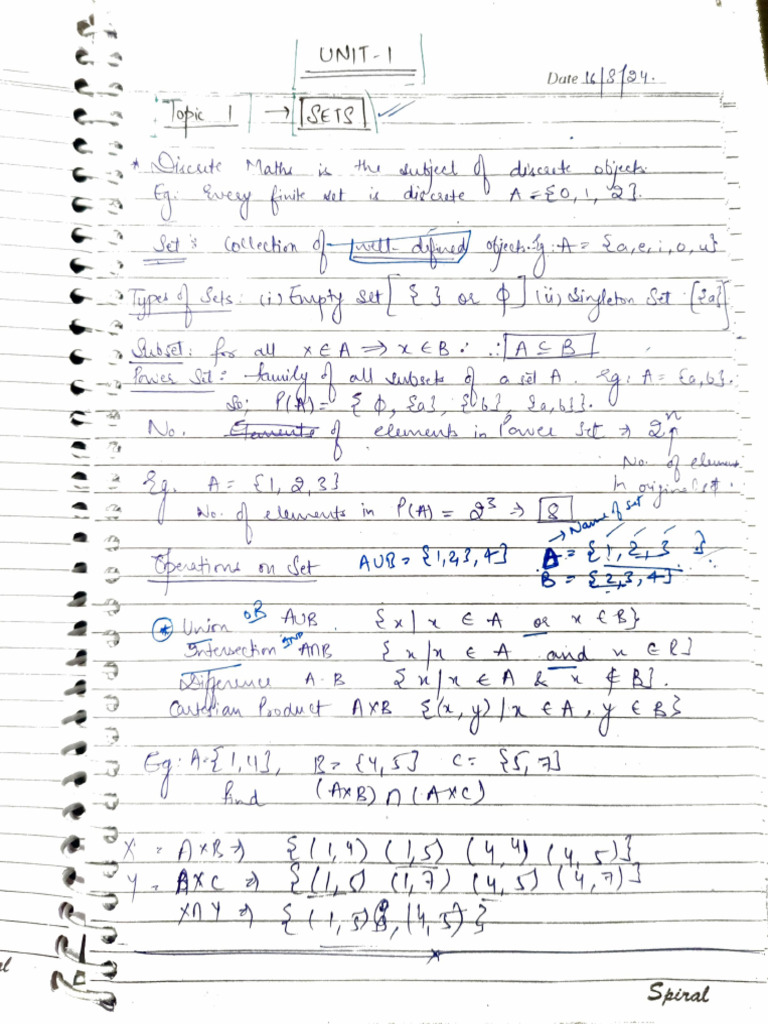 UNIT-1
Date 16/8/24.
Topic 1 → SETS
* Discrete Maths is the subject of discrete objects.
Eg: Every finite set is discrete A = {0, 1, 2}.
Set : Collection of well-defined objects. Eg: A = {a, e, i, o, u}
Types of Sets: (i) Empty set [ { } or ϕ ] (ii) Singleton Set : [{a}]
Subset: for all x ∈ A ⇒ x ∈ B ∴ A ⊆ B
Power Set: family of all subsets of a set A. Eg: A = {a, b}.
So; P(A) = { ϕ, {a}, {b}, {a, b}}.
No. Elements of elements in Power Set ⇒ 2^n
No. of elements
In original set.
Eg. A = {1, 2, 3}
No. of elements in P(A) = 2^3 ⇒ 8
→ Name of set
Operations on Set A∪B = {1, 2, 3, 4} A = { 1, 2, 3 }
B = {2, 3, 4}
* Union OR A∪B. {x | x ∈ A or x ∈ B}.
Intersection AND A∩B {x | x ∈ A and x ∈ B}
Difference A - B {x | x ∈ A & x ∉ B}.
Cartesian Product A×B {(x, y) | x ∈ A, y ∈ B}
Eg: A = {1, 4}, B = {4, 5} C = {5, 7}
find (A×B) ∩ (A×C)
X = A×B ⇒ {(1, 4) (1, 5) (4, 4) (4, 5)}
Y = A×C ⇒ {(1, 5) (1, 7) (4, 5) (4, 7)}
X∩Y ⇒ {(1, 5), (4, 5)}
Spiral